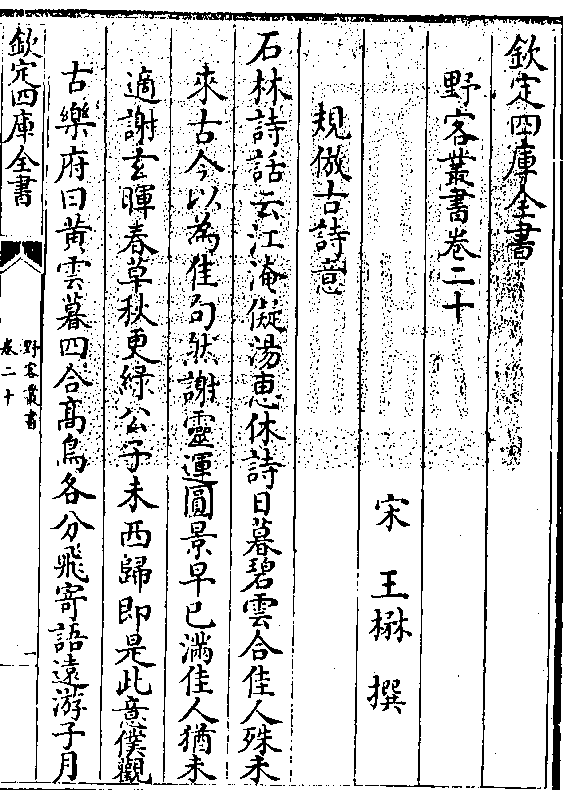 欽定四庫全書
野客叢書卷二十
宋 王楙 撰
規倣古詩意
石林詩話云江淹儗湯惠休詩日暮碧雲合佳人殊未
來古今以為佳句然謝靈運圓景早已滿佳人猶未
適謝玄暉春草秋更綠公子未西歸即是此意僕觀
古樂府曰黃雲暮四合高鳥各分飛寄語遠游子月
欽定四庫全書
野客叢書
卷二十
一